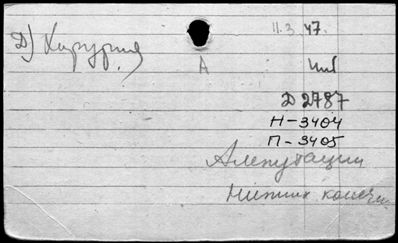 11.3.47.
Д) Хирургия
А инв
Д 2787
Н-3404
П-3405
Ампутации
нижних конечн.